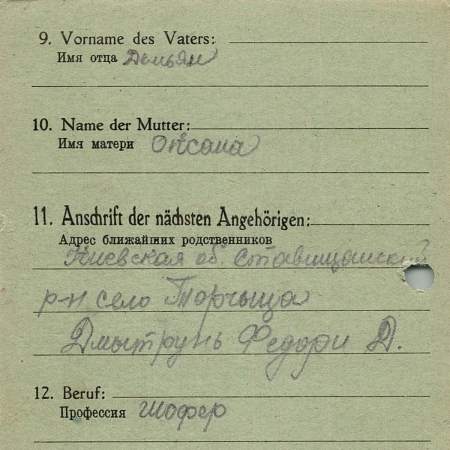 9. Vorname des Vaters:
Имя отца Демьян
10. Name der Mutter:
Имя матери Оксана
11. Anschrift der nächsten Angehörigen:
Адрес ближайших родственников
Киевская об. Ставищанский
р-н село Торчыца
Дмытрунь Федори Д.
12. Beruf:
Профессия шофер